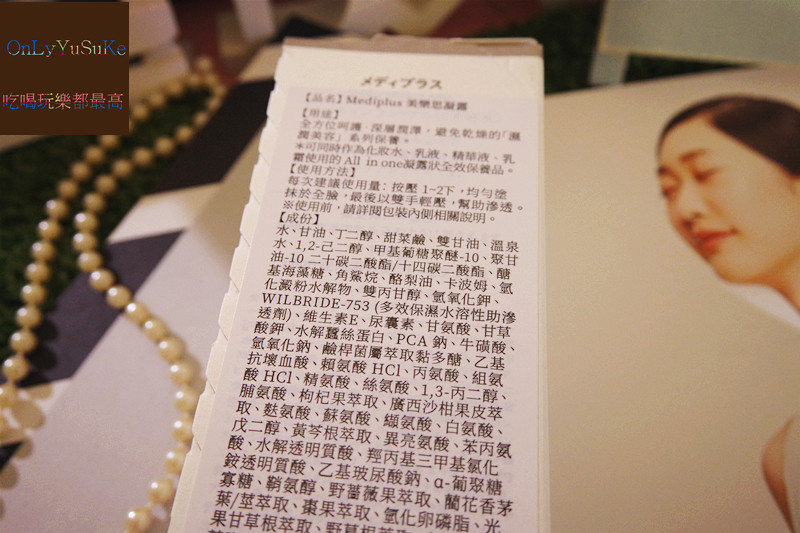 OnLyYuSuKe
吃喝玩樂都最高
メディプラス
【品名】Mediplus 美樂思凝露
【用途】
全方位呵護、深層潤澤，避免乾燥的「濕
潤美容」系列保養。
*可同時作為化妝水、乳液、精華液、乳
霜使用的 All in one凝露狀全效保養品。
【使用方法】
每次建議使用量：按壓 1~2下，均勻塗
抹於全臉，最後以雙手輕壓，幫助滲透。
※使用前，請詳閱包裝內側相關說明。
【成份】
水、甘油、丁二醇、甜菜鹼、雙甘油、溫泉
水、1,2-己二醇、甲基葡糖聚醚-10、聚甘
油-10 二十碳二酸酯/十四碳二酸酯、醣
基海藻糖、角鯊烷、酪梨油、卡波姆、氫
化澱粉水解物、雙丙甘醇、氫氧化鉀、
WILBRIDE-753 (多效保濕水溶性助滲
透劑)、維生素E、尿囊素、甘氨酸、甘草
酸鉀、水解蠶絲蛋白、PCA 鈉、牛磺酸、
氫氧化鈉、鹼桿菌屬萃取黏多醣、乙基
抗壞血酸、賴氨酸 HCl、丙氨酸、組氨
酸 HCl、精氨酸、絲氨酸、1,3-丙二醇、
脯氨酸、枸杞果萃取、廣西沙柑果皮萃
取、麩氨酸、蘇氨酸、纈氨酸、白氨酸、
戊二醇、黃芩根萃取、異亮氨酸、苯丙氨
酸、水解透明質酸、羥丙基三甲基氯化
銨透明質酸、乙基玻尿酸鈉、α-葡聚糖
寡糖、鞘氨醇、野薔薇果萃取、藺花香茅
葉/莖萃取、棗果萃取、氫化卵磷脂、光
果甘草根萃取、野草根萃取、